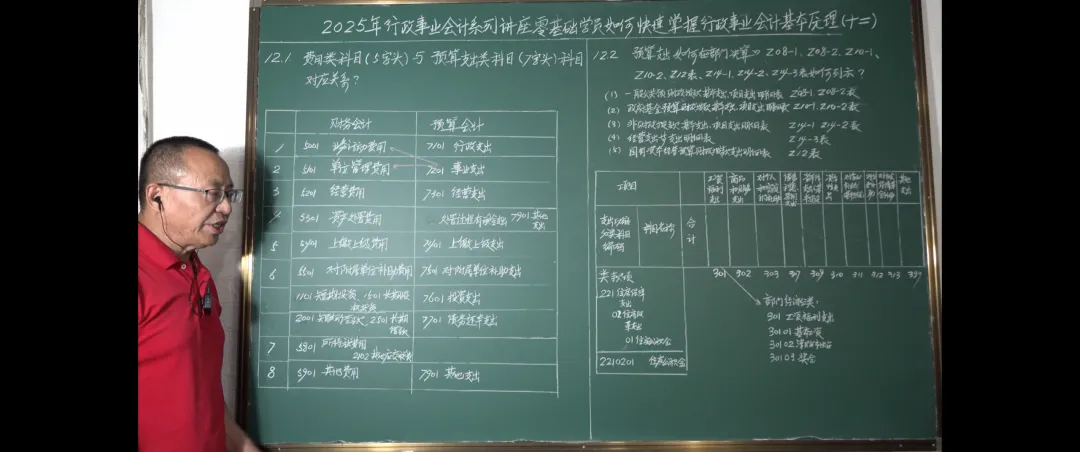 2025年行政事业会计系列讲座零基础学员如何快速掌握行政事业会计基本原理(十二)
12.1 费用类科目(5字头)与预算支出类科目(7字头)科目
对应关系?
财务会计 预算会计
1 5001 业务活动费用 7101 行政支出
2 5101 单位管理费用 7201 事业支出
3 5201 经营费用 7301 经营支出
4 5301 资产处置费用 7901 其他支出
5 5401 上缴上级费用 7401 上缴上级支出
6 5501 对附属单位补助费用 7501 对附属单位补助支出
1101 短期投资、1501 长期股权投资 7601 投资支出
2001 短期借款、2501 长期借款 7701 债务还本支出
7 5801 所得税费用
2102 其他应交税费
8 5901 其他费用 7901 其他支出
12.2 预算支出如何在部门决算 Z08-1、Z08-2、Z10-1、
Z10-2、Z12表、Z14-1、Z14-2、Z14-3表如何列示?
(1) 一般公共预算财政拨款基本支出、项目支出明细表 Z08-1、Z08-2表
(2) 政府基金预算财政拨款基本支出、项目支出明细表 Z10-1、Z10-2表
(3) 非财政拨款基本支出、项目支出明细表 Z14-1 Z14-2表
(4) 经营支出明细表 Z14-3表
(5) 国有资本经营预算财政拨款支出明细表 Z12表
项目 工资福利支出 商品和服务支出 对个人和家庭的补助 其他支出
支出功能分类科目编码 科目名称 合计
类 款 项 301 302 303 307 309 310 311 312 313 399
221 住房保障支出
02 住房改革支出
01 住房公积金
2210201 住房公积金
部门经济分类:
301 工资福利支出
30101 基本工资
30102 津贴补贴
30103 奖金